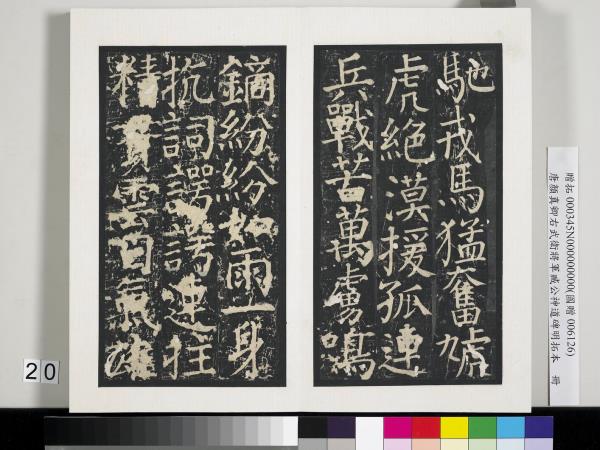 馳戎馬猛奮虓
虎絕漠援孤連
兵戰苦萬虜鳴
鏑紛紛如雨一身
抗詞諤諤連拄
精貫雲日氣雄
贈拓 000345N000000000(國贈 006126)
唐顏真卿右武衛將軍臧公神道碑明拓本 冊
20